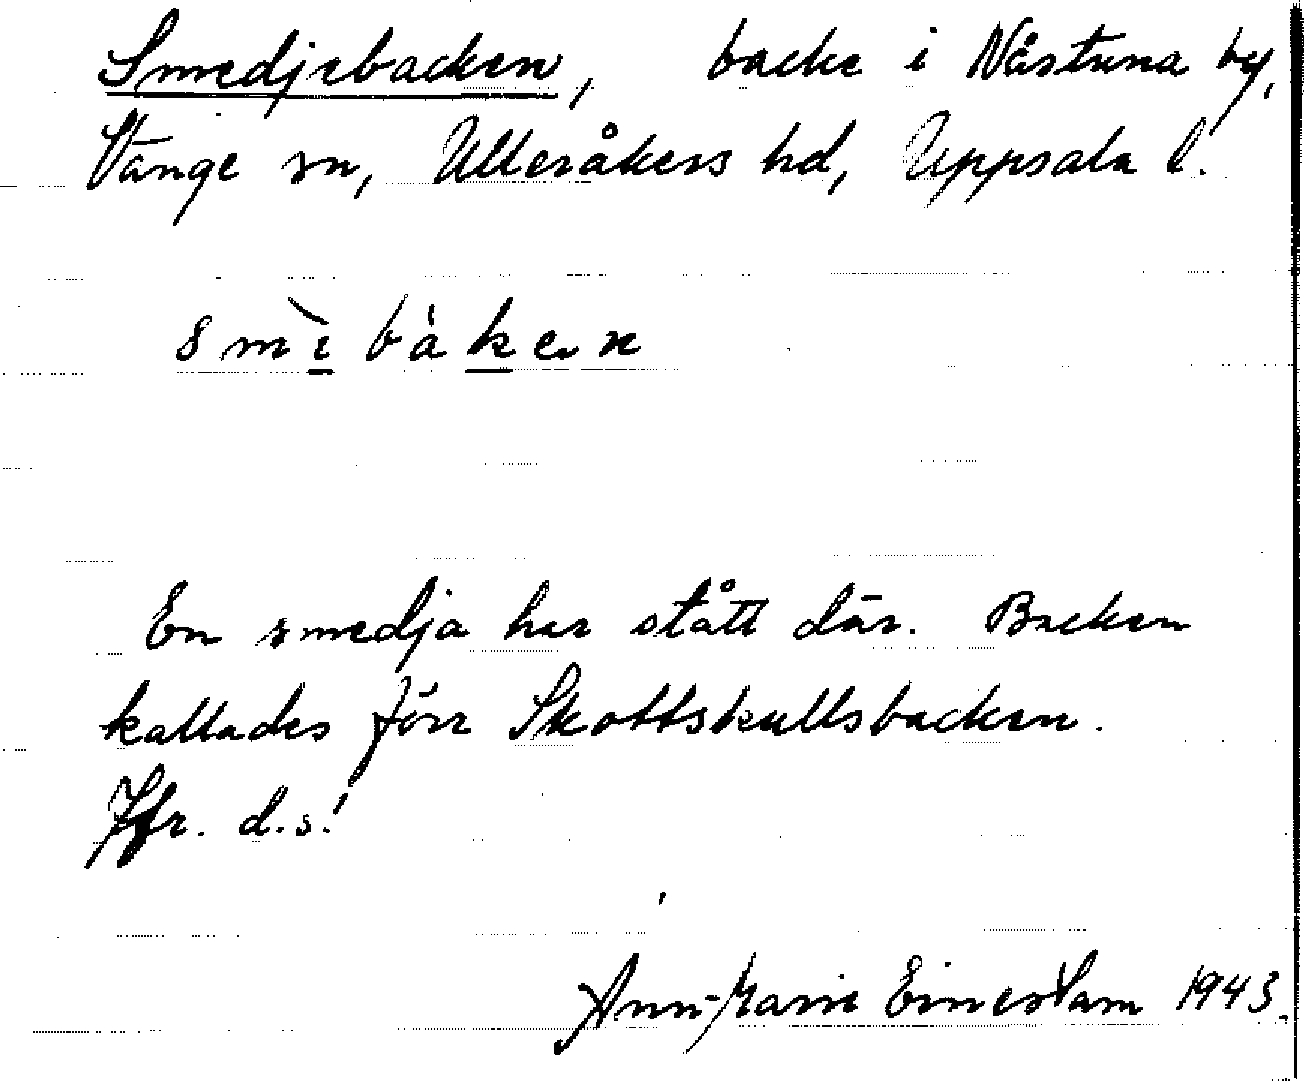 Smedjebacken, backe i Nåstuna by,
Vänge sn, Ulleråkers hd, Uppsala l.
smìbáken
En smedja har stått där. Backen
kallades förr Skottskullsbacken.
Jfr. d.s.!
Ann-Marie 1943.